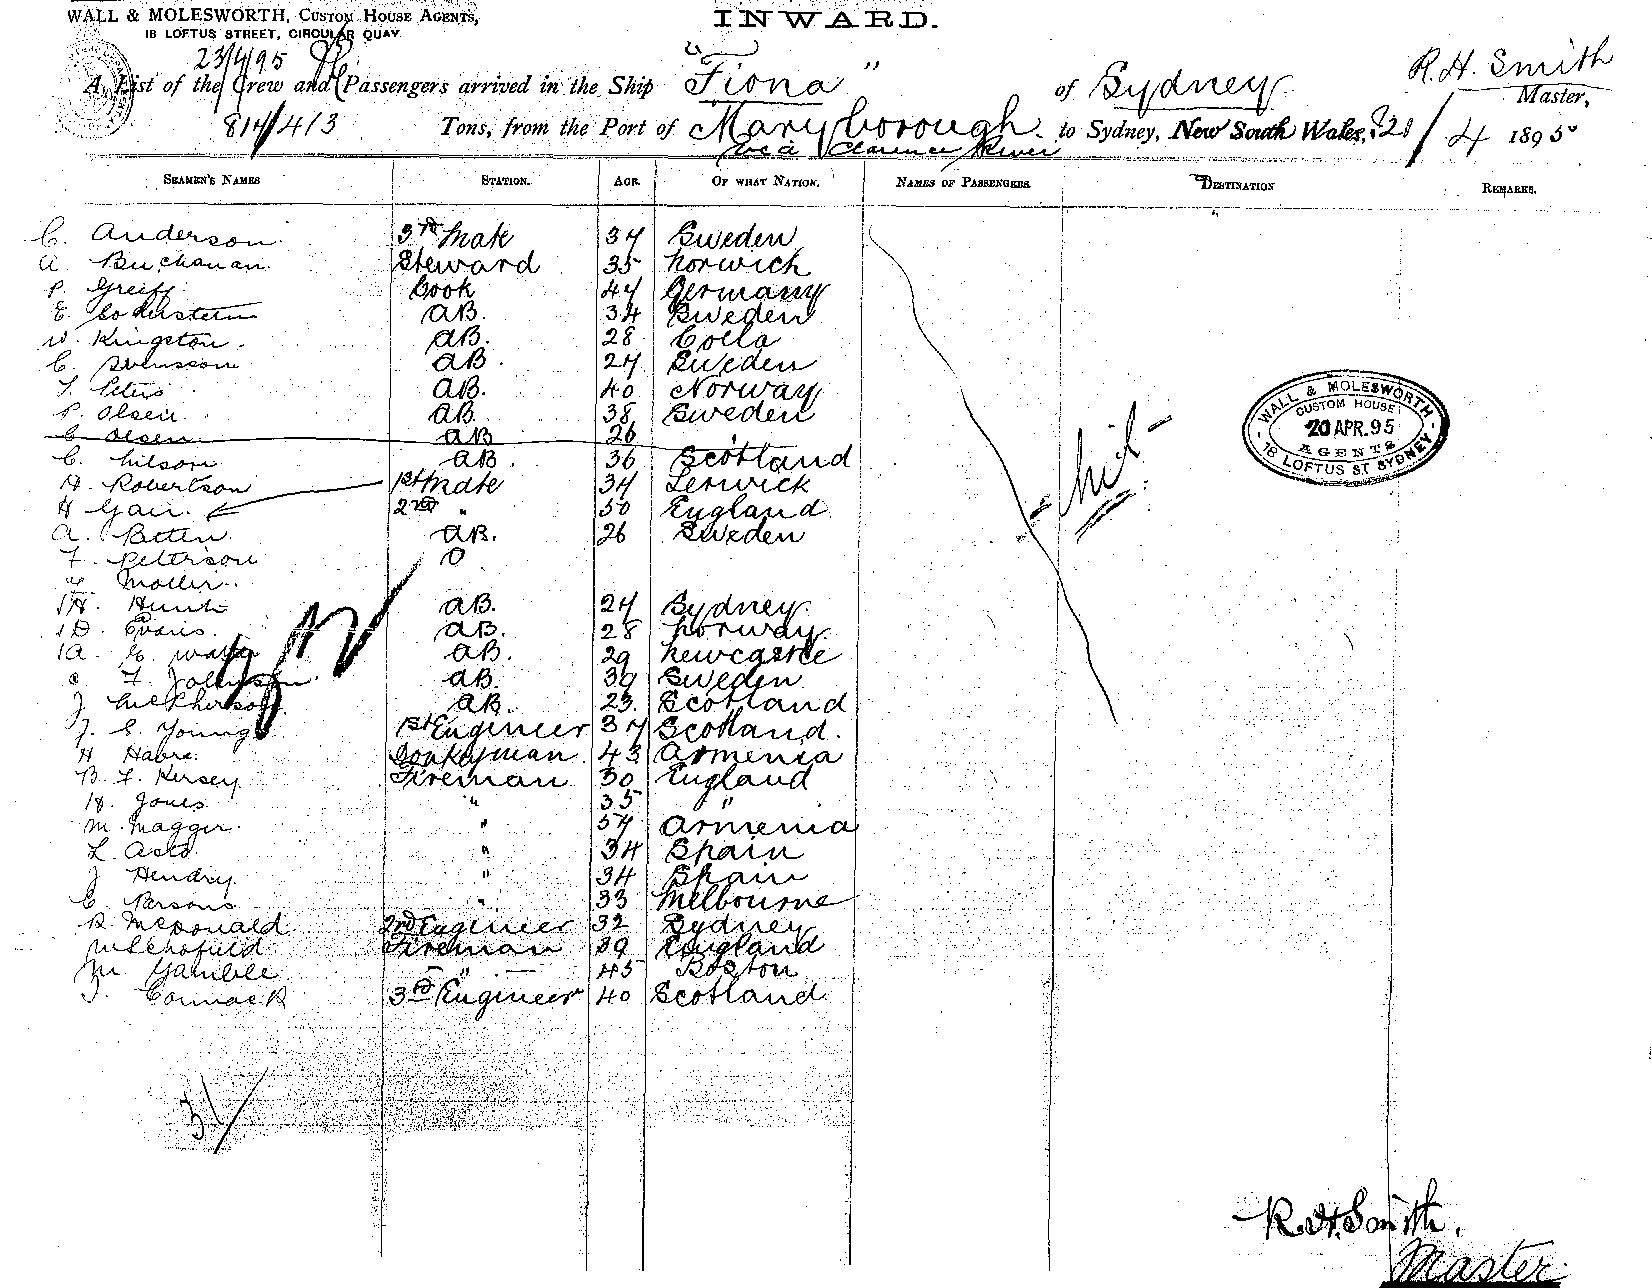 WALL & MOLESWORTH, CUSTOM HOUSE AGENTS,
18 LOFTUS STREET, CIRCULAR QUAY.
INWARD.
23/4/95
R. H. Smith
Master,
A List of the Crew and Passengers arrived in the Ship "Fiona" of Sydney
814/413 Tons, from the Port of Maryborough to Sydney, New South Wales, 4 1895
via Clarence River
SEAMEN'S NAMES STATION. AGE. OF WHAT NATION. NAMES OF PASSENGERS. DESTINATION REMARKS.
C. Anderson 3rd Mate 37 Sweden
A Buchanan Steward 35 Norwich
P. Greiff Cook 47 Germany
E. AB. 34 Sweden
W. Kingston. AB. 28
C. Svensson AB. 27 Sweden
Peters AB. 40 Norway
P. Olsen AB. 38 Sweden
C Olsen AB 26
C. Nilson AB. 36 Scotland
H. Robertson 1st Mate 37 Lerwick
H Gair. 2nd " 50 England
A. AB. 26 Sweden
F. Peterson O
Moller.
H. Hunt AB. 27 Sydney.
D. Evans. AB. 28 Norway.
A. AB. 29 Newcastle
AB. 39 Sweden
J. McPherson AB. 23. Scotland
J. S. Young 1st Engineer 37 Scotland.
H Habre. Donkeyman 43 Armenia
B. F. Kersey Fireman 30 England
H. Jones " 35 "
M. Magger. " 57 Armenia
L. " 34 Spain
J Hendry. " 34 Spain
C. Persons " 33 Melbourne
R. McDonald 2nd Engineer 32 Sydney
Schofield Fireman 39 England
Gamble " 45 Boston
Cormack 3rd Engineer 40 Scotland
Nil
WALL & MOLESWORTH
CUSTOM HOUSE
20 APR. 95
AGENTS
18 LOFTUS ST SYDNEY
31/
R. H. Smith.
Master